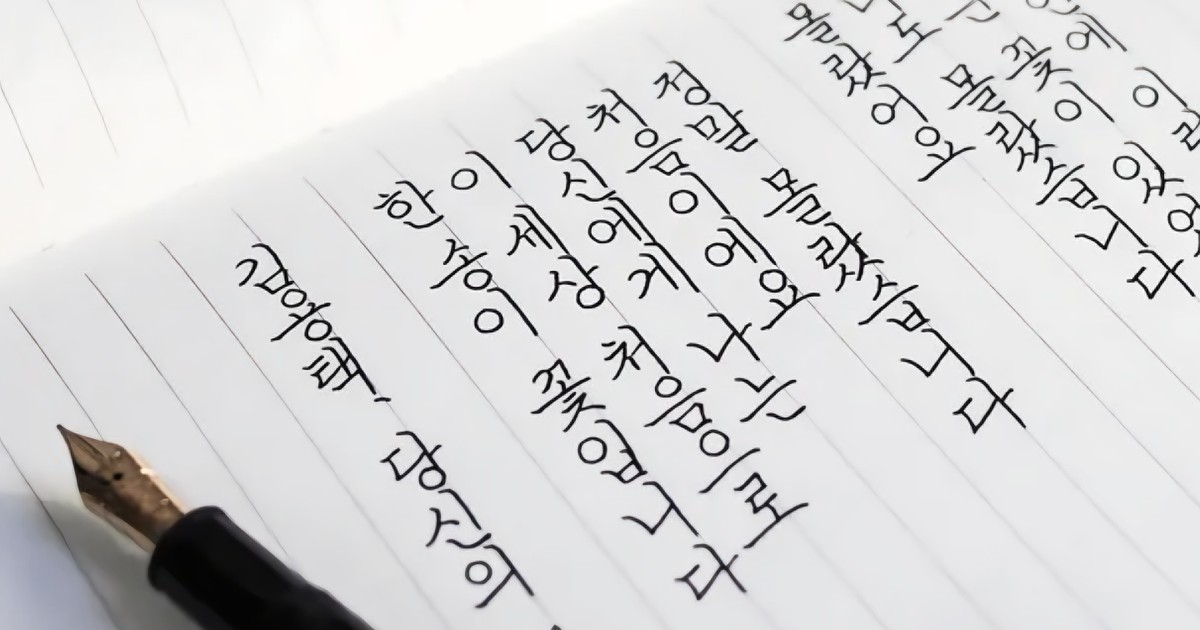 에 이
꽃이 있
도 몰랐습니다
몰랐어요
정말 몰랐습니다
처음이에요
당신에게 나는
이 세상 처음으로
한송이 꽃입니다
김용택. 당신의